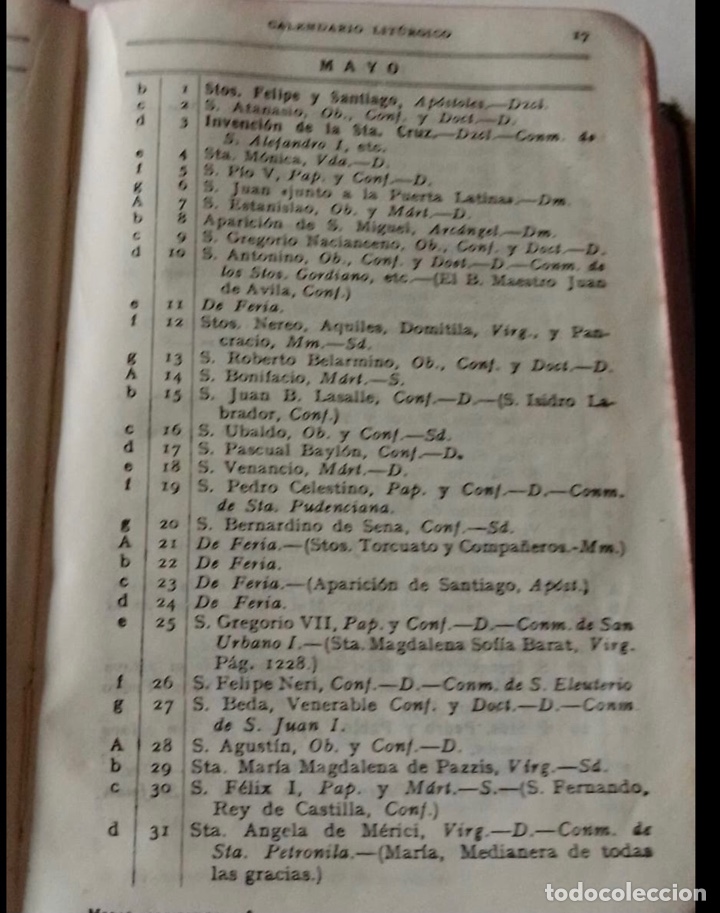 CALENDARIO LITÚRGICO 17
MAYO
b 1 Stos. Felipe y Santiago, Apóstoles.—Dzcl.
c 2 S. Atanasio, Ob., Conf. y Doct.—D.
d 3 Invención de la Sta. Cruz.—Dzcl.—Conm. de
S. Alejandro I, etc.
e 4 Sta. Mónica, Vda.—D.
f 5 S. Pío V, Pap. y Conf.—D.
g 6 S. Juan «junto a la Puerta Latina».—Dm.
A 7 S. Estanislao, Ob. y Márt.—D.
b 8 Aparición de S. Miguel, Arcángel.—Dm.
c 9 S. Gregorio Nacianceno, Ob., Conf. y Doct.—D.
d 10 S. Antonino, Ob., Conf. y Doct.—D.—Conm. de
los Stos. Gordiano, etc.—(El B. Maestro Juan
de Avila, Conf.)
e 11 De Feria.
f 12 Stos. Nereo, Aquiles, Domitila, Virg., y Pan-
cracio, Mm.—Sd.
g 13 S. Roberto Belarmino, Ob., Conf. y Doct.—D.
A 14 S. Bonifacio, Márt.—S.
b 15 S. Juan B. Lasalle, Conf.—D.—(S. Isidro La-
brador, Conf.)
c 16 S. Ubaldo, Ob. y Conf.—Sd.
d 17 S. Pascual Baylón, Conf.—D.
e 18 S. Venancio, Márt.—D.
f 19 S. Pedro Celestino, Pap. y Conf.—D.—Conm.
de Sta. Pudenciana.
g 20 S. Bernardino de Sena, Conf.—Sd.
A 21 De Feria.—(Stos. Torcuato y Compañeros.-Mm.)
b 22 De Feria.
c 23 De Feria.—(Aparición de Santiago, Apóst.)
d 24 De Feria.
e 25 S. Gregorio VII, Pap. y Conf.—D.—Conm. de San
Urbano I.—(Sta. Magdalena Sofía Barat, Virg.
Pág. 1228.)
f 26 S. Felipe Neri, Conf.—D.—Conm. de S. Eleuterio
g 27 S. Beda, Venerable Conf. y Doct.—D.—Conm.
de S. Juan I.
A 28 S. Agustín, Ob. y Conf.—D.
b 29 Sta. María Magdalena de Pazzis, Virg.—Sd.
c 30 S. Félix I, Pap. y Márt.—S.—(S. Fernando,
Rey de Castilla, Conf.)
d 31 Sta. Angela de Mérici, Virg.—D.—Conm. de
Sta. Petronila.—(María, Medianera de todas
las gracias.)
todocoleccion